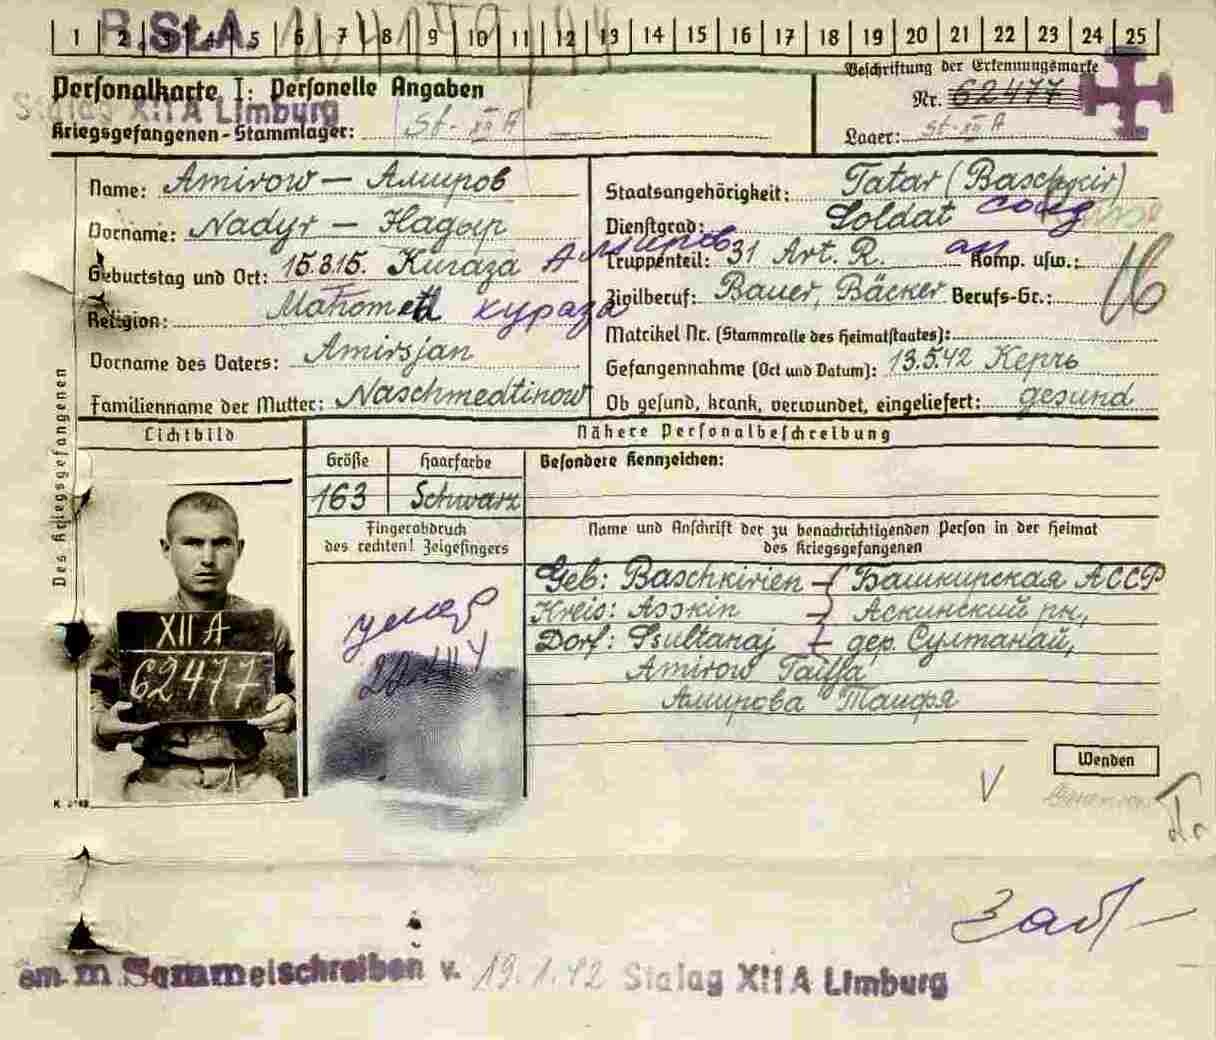 1 2 3 4 5 6 7 8 9 10 11 12 13 14 15 16 17 18 19 20 21 22 23 24 25
R.St.A.
Personalkarte I: Personelle Angaben
Stalag XII A Limburg
Kriegsgefangenen-Stammlager: St-XII A
Beschriftung der Erkennungsmarke
Nr. 62477
Lager: St-XII A
Des Kriegsgefangenen
Name: Amirow — Амиров
Vorname: Nadyr — Надыр
Geburtstag und Ort: 15.8.15. Kuraza Амиров
Religion: Mahomed хураза
Vorname des Vaters: Amirsjan
Familienname der Mutter: Naschmedtinow
Staatsangehörigkeit: Tatar (Baschkir)
Dienstgrad: Soldat солд
Truppenteil: 31 Art. R. Komp. usw.:
Zivilberuf: Bauer, Bäcker Berufs-Gr.: 16
Matrikel Nr. (Stammrolle des Heimatstaates):
Gefangennahme (Ort und Datum): 13.5.42 Керчь
Ob gesund, krank, verwundet, eingeliefert: gesund
Lichtbild
Nähere Personalbeschreibung
Größe Haarfarbe Besondere Kennzeichen:
163 Schwarz
Fingerabdruck
des rechten! Zeigefingers
Name und Anschrift der zu benachrichtigenden Person in der Heimat
des Kriegsgefangenen
Geb: Baschkirien – Башкирская АССР
Kreis: Asskin – Аскинский рн,
Dorf: Ssultanaj – дер. Султанай,
Amirow Taiffa
Амирова Таифя
XII A
62477
умер
Wenden
V
Заб
em. m Sammelschreiben v. 19.1.42 Stalag XII A Limburg